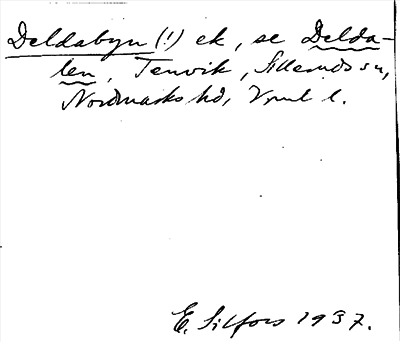 Deldabyn (!) ek, se Delda-
len, Tenvik, Silleruds sn,
Nordmarks hd, Vrml l.
E. Silfors 1937.